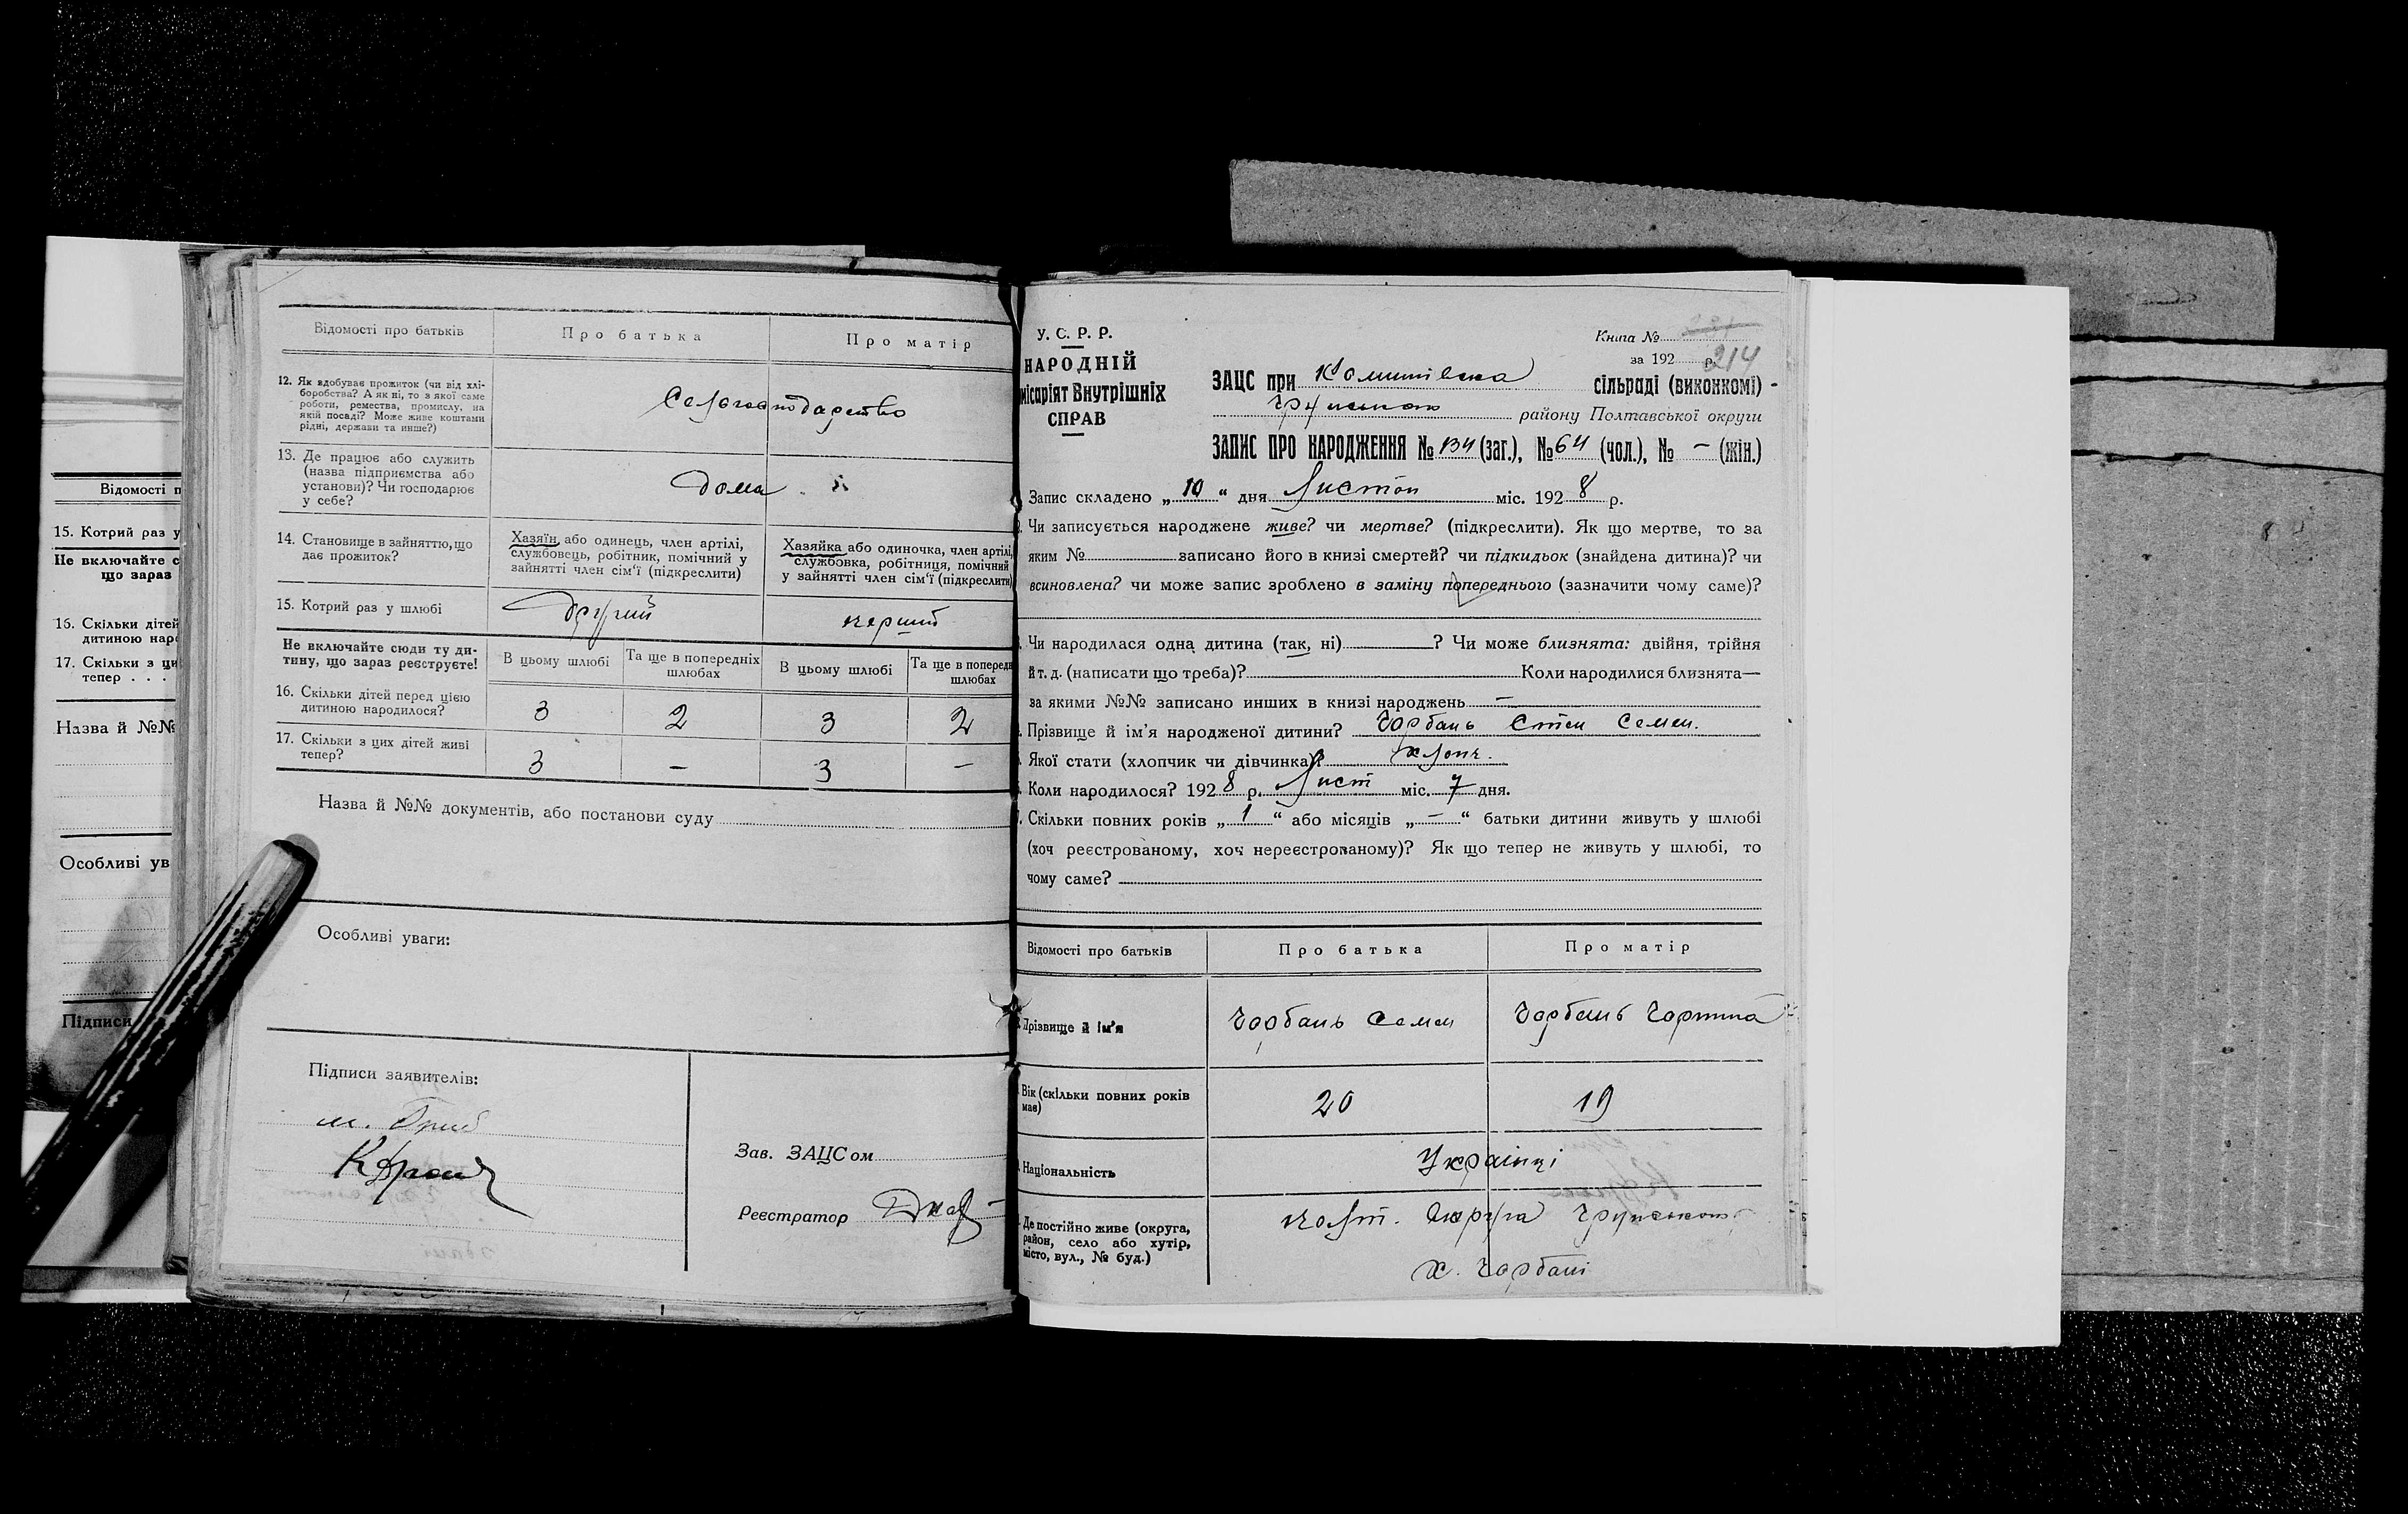 Відомості п
15. Котрий раз у
Не включайте с
що зараз
16. Скільки дітей
дитиною наро
17. Скільки з ци
тепер . . .
Назва й №№
Особливі ув
Підписи
Відомості про батьків
Про батька
Про матір
12. Як здобуває прожиток (чи від хлі-
боробства? А як ні, то з якої саме
роботи, ремества, промислу, на
якій посаді? Може живе коштами
рідні, держави та инше?)
Сельгосподарство
13. Де працює або служить
(назва підприємства або
установи)? Чи господарює
у себе?
дома
14. Становище в зайняттю, що
дає прожиток?
Хазяїн або одинець, член артілі,
службовець, робітник, помічний у
зайнятті член сім'ї (підкреслити)
Хазяйка або одиночка, член артілі,
службовка, робітниця, помічний
у зайнятті член сім'ї (підкреслити)
15. Котрий раз у шлюбі
другий
перший
Не включайте сюди ту ди-
тину, що зараз реєструєте!
В цьому шлюбі
Та ще в попередніх
шлюбах
В цьому шлюбі
Та ще в поперед
шлюбах
16. Скільки дітей перед цією
дитиною народилося?
3 2 3 2
17. Скільки з цих дітей живі
тепер?
3 – 3 –
Назва й №№ документів, або постанови суду
Особливі уваги:
Підписи заявителів:
Зав. ЗАЦСом
Реєстратор
У. С. Р. Р.
НАРОДНІЙ
місаріят Внутрішніх
СПРАВ
Книга №
за 192 р.
214
ЗАЦС при сільраді (виконкомі) -
району Полтавської округи
ЗАПИС ПРО НАРОДЖЕННЯ № 134 (заг.), № 64 (чол.), № – (жін.)
Запис складено „ 10 “ дня Листоп міс. 192 8 р.
Чи записується народжене живе? чи мертве? (підкреслити). Як що мертве, то за
яким № записано його в книзі смертей? чи підкидьок (знайдена дитина)? чи
всиновлена? чи може запис зроблено в заміну попереднього (зазначити чому саме)?
Чи народилася одна дитина (так, ні) ? Чи може близнята: двійня, трійня
й т. д. (написати що треба)? Коли народилися близнята—
за якими №№ записано инших в книзі народжень –
Прізвище й ім'я народженої дитини? Чорбань Степ Семен.
Якої стати (хлопчик чи дівчинка)? хлопч.
Коли народилося? 192 8 р. Лист міс. 7 дня.
Скільки повних років „ 1 “ або місяців „ – “ батьки дитини живуть у шлюбі
(хоч реєстрованому, хоч нереєстрованому)? Як що тепер не живуть у шлюбі, то
чому саме?
Відомості про батьків
Про батька
Про матір
Прізвище й ім'я
Чорбань Семен
Чорбань
Вік (скільки повних років
має)
20
19
Національність
Українці
Де постійно живе (округа,
район, село або хутір,
місто, вул., № буд.)
Полт. округа
х. Чорбані